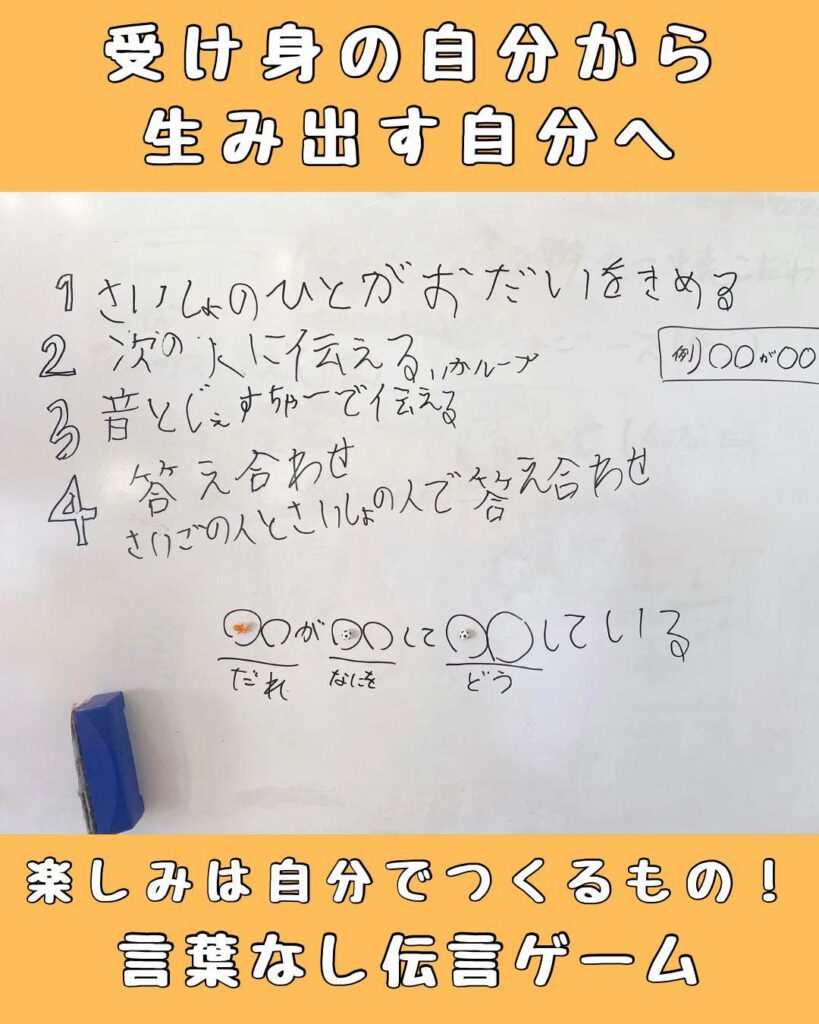 受け身の自分から
生み出す自分へ
1 さいしょのひとがおだいをきめる
2 次の人に伝える
例) 〇〇が〇〇
3 音とじぇすちゃーで伝える
4 答え合わせ
さいごの人とさいしょの人で答え合わせ
〇〇が〇〇して〇〇している
だれ なにを どう
楽しみは自分でつくるもの！
言葉なし伝言ゲーム